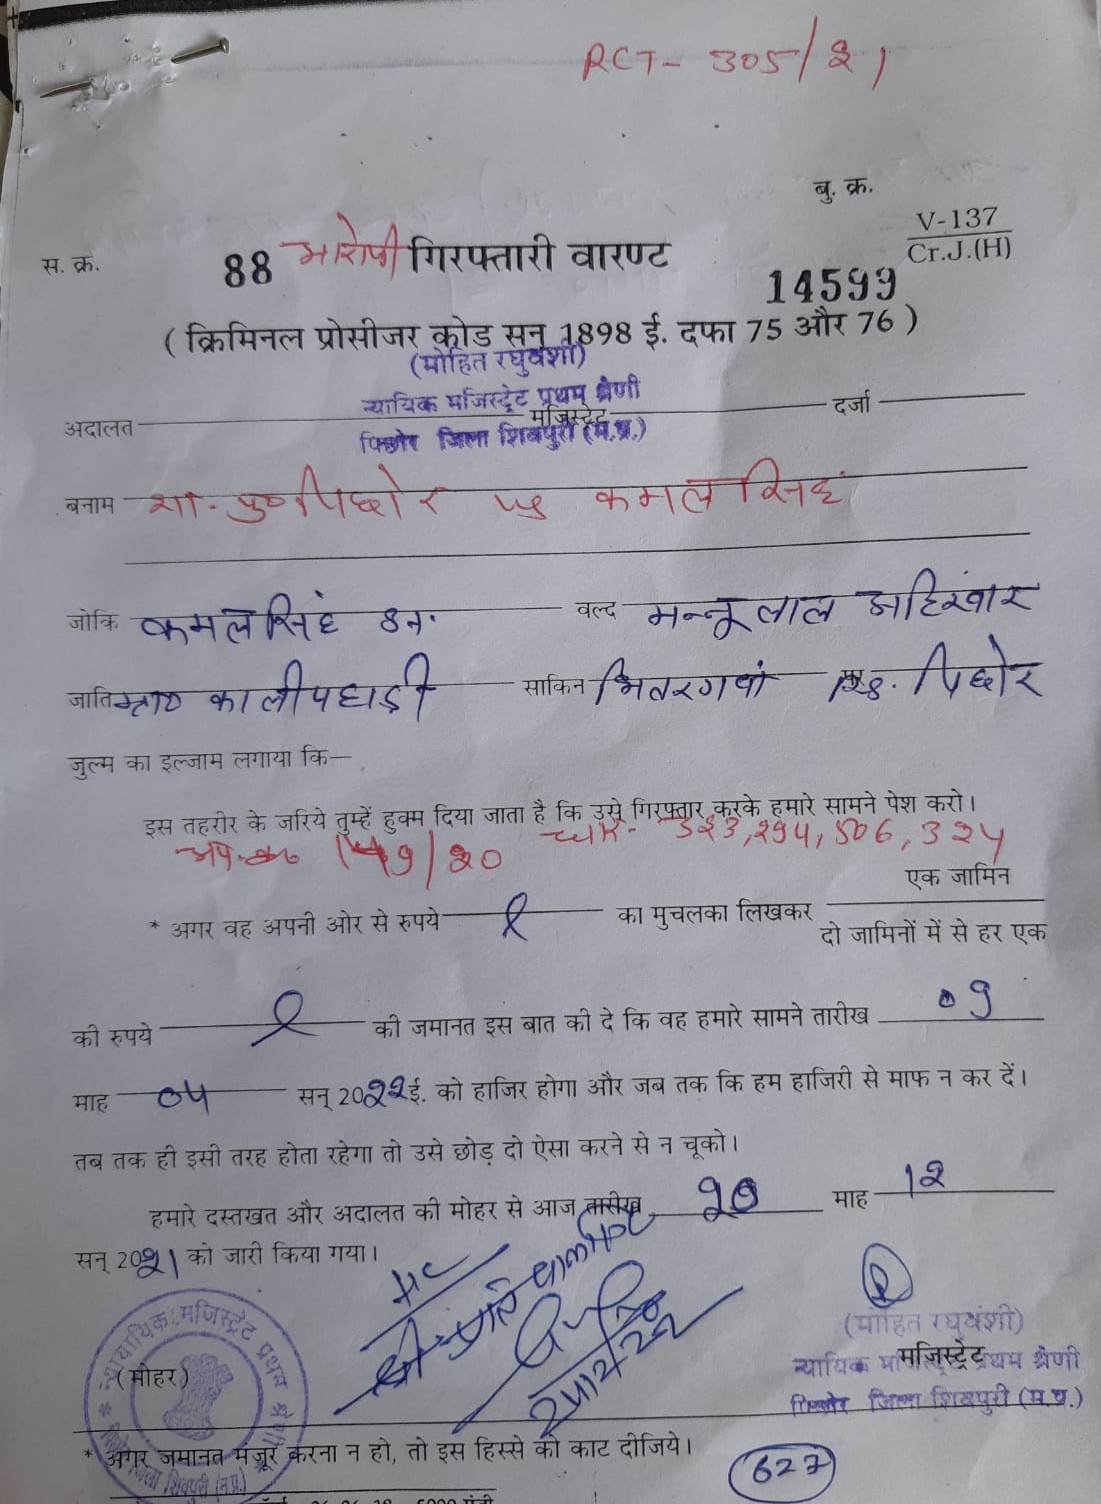 RCT- 305/21
बु. क्र.
V-137
Cr.J.(H)
स. क्र. 88 आरोपी गिरफ्तारी वारण्ट
14599
( क्रिमिनल प्रोसीजर कोड सन् 1898 ई. दफा 75 और 76 )
(मोहित रघुवंशी)
न्यायिक मजिस्ट्रेट प्रथम श्रेणी
अदालत मजिस्ट्रेट दर्जा
पिछोर जिला शिवपुरी (म.प्र.)
बनाम शा. पु० पिछोर कमल सिंह
जोकि कमल सिंह वल्द मन्नूलाल अहिरवार
जाति काली पहाड़ी साकिन भितरगवां पिछोर
जुल्म का इल्जाम लगाया कि—
इस तहरीर के जरिये तुम्हें हुक्म दिया जाता है कि उसे गिरफ्तार करके हमारे सामने पेश करो।
अप. क्र० 149/20 धारा- 323, 294, 506, 324
एक जामिन
* अगर वह अपनी ओर से रुपये का मुचलका लिखकर
दो जामिनों में से हर एक
की रुपये की जमानत इस बात की दे कि वह हमारे सामने तारीख 09
माह 04 सन् 2022 ई. को हाजिर होगा और जब तक कि हम हाजिरी से माफ न कर दें।
तब तक ही इसी तरह होता रहेगा तो उसे छोड़ दो ऐसा करने से न चूको।
हमारे दस्तखत और अदालत की मोहर से आज तारीख 20 माह 12
सन् 2021 को जारी किया गया।
(मोहित रघुवंशी)
मजिस्ट्रेट
न्यायिक मजिस्ट्रेट प्रथम श्रेणी
पिछोर जिला शिवपुरी (म.प्र.)
न्यायिक मजिस्ट्रेट प्रथम श्रेणी
(मोहर)
जिला शिवपुरी (म.प्र.)
* अगर जमानत मंजूर करना न हो, तो इस हिस्से को काट दीजिये।
627